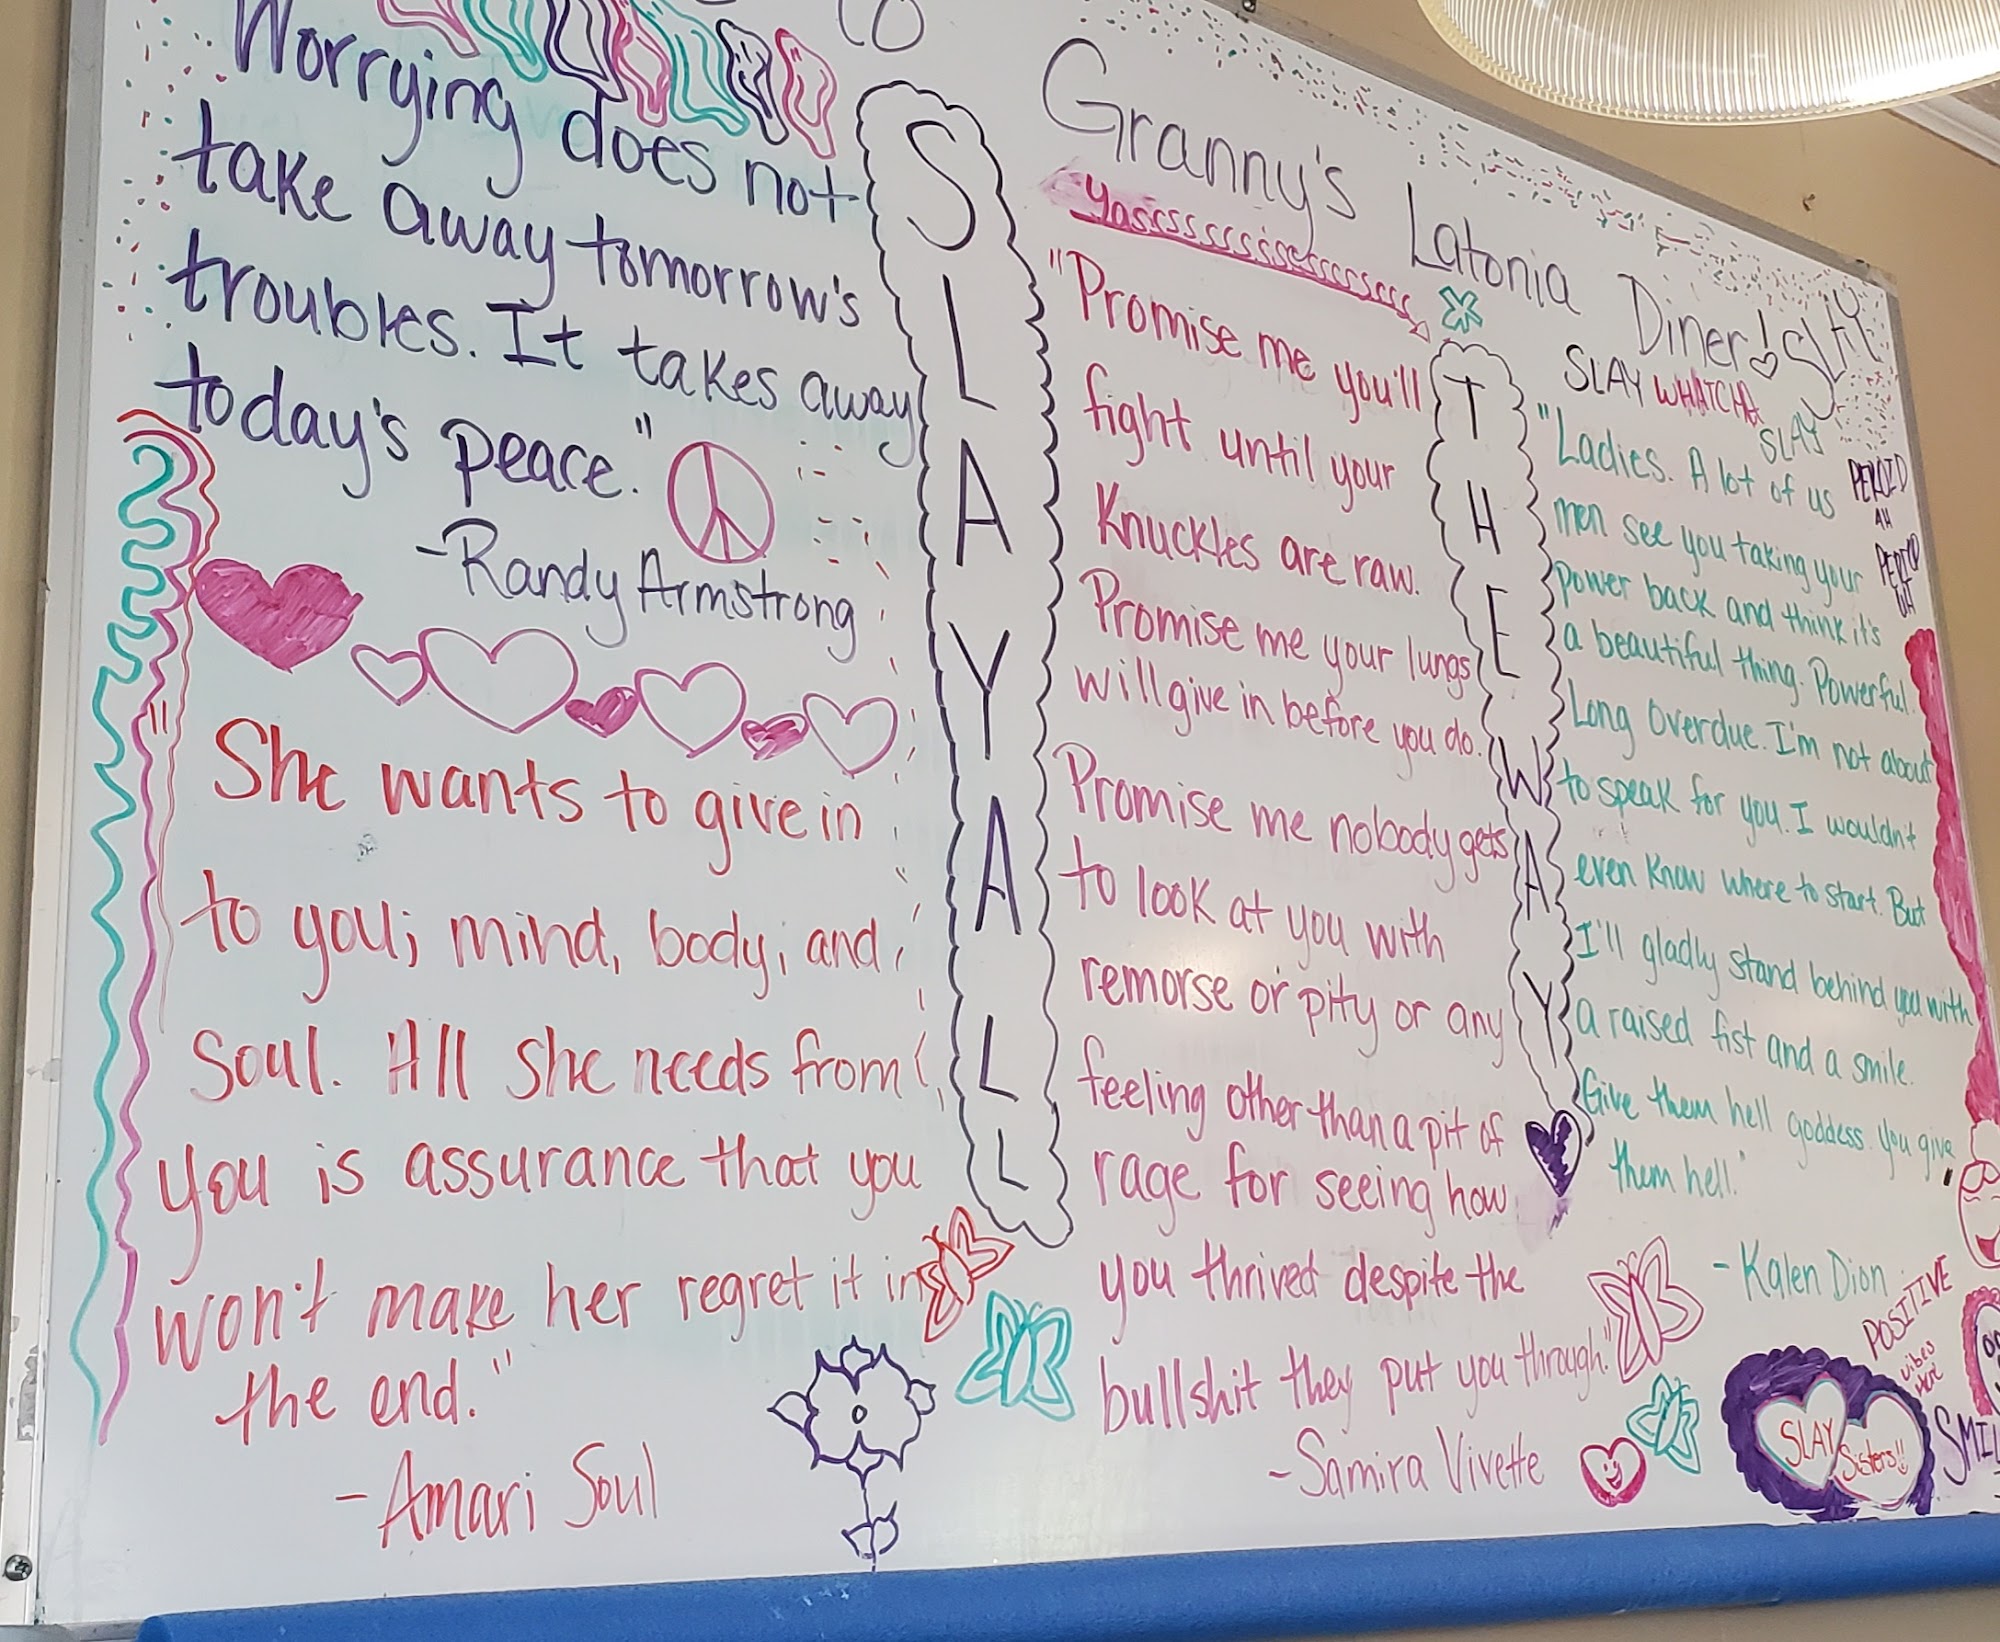 to
Granny's Latonia Diner! SLAY
Worrying does not
take away tomorrow's
troubles. It takes away
today's peace."
-Randy Armstrong
"She wants to give in
to you; mind, body, and
Soul. All she needs from
you is assurance that you
won't make her regret it in
the end."
-Amari Soul
SLAYYALL
"Promise me you'll
fight until your
Knuckles are raw.
Promise me your lungs
will give in before you do.
Promise me nobody gets
to look at you with
remorse or pity or any
feeling other than a pit of
rage for seeing how
you thrived despite the
bullshit they put you through."
-Samira Vivette
THEWAY
SLAY WHATCHA
SLAY
"Ladies. A lot of us
men see you taking your
power back and think it's
a beautiful thing. Powerful.
Long Overdue. I'm not about
to speak for you. I wouldn't
even know where to start. But
I'll gladly stand behind you with
a raised fist and a smile.
Give them hell goddess. You give
them hell."
-Kalen Dion
PEROID
AH
PERIOD
UH
POSITIVE
vibes
SLAY
Sisters!!